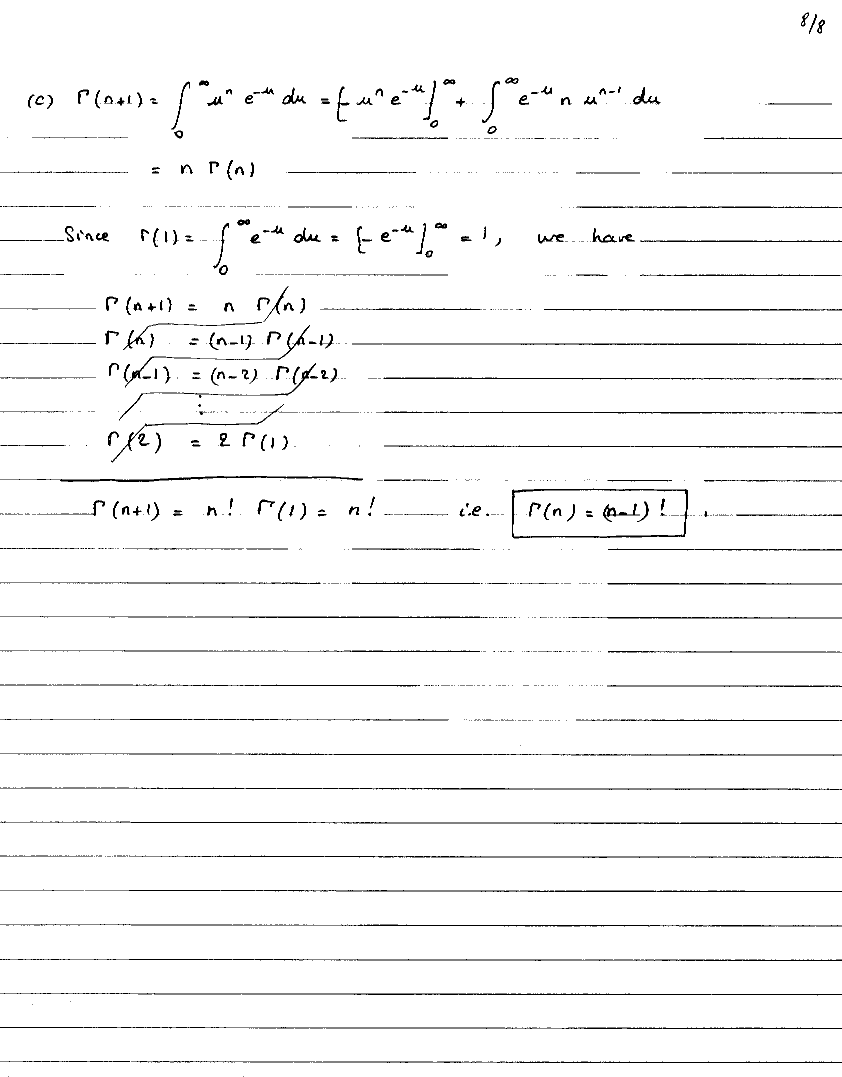 8/8
(c) Γ(n+1) = ∫₀^∞ uⁿ e^{-u} du = [- uⁿ e^{-u}]₀^∞ + ∫₀^∞ e^{-u} n u^{n-1} du
= n Γ(n)
Since Γ(1) = ∫₀^∞ e^{-u} du = [- e^{-u}]₀^∞ = 1, we have
Γ(n+1) = n Γ(n)
Γ(n) = (n-1) Γ(n-1)
Γ(n-1) = (n-2) Γ(n-2)
⋮
Γ(2) = 2 Γ(1)
Γ(n+1) = n! Γ(1) = n! i.e. Γ(n) = (n-1)! .